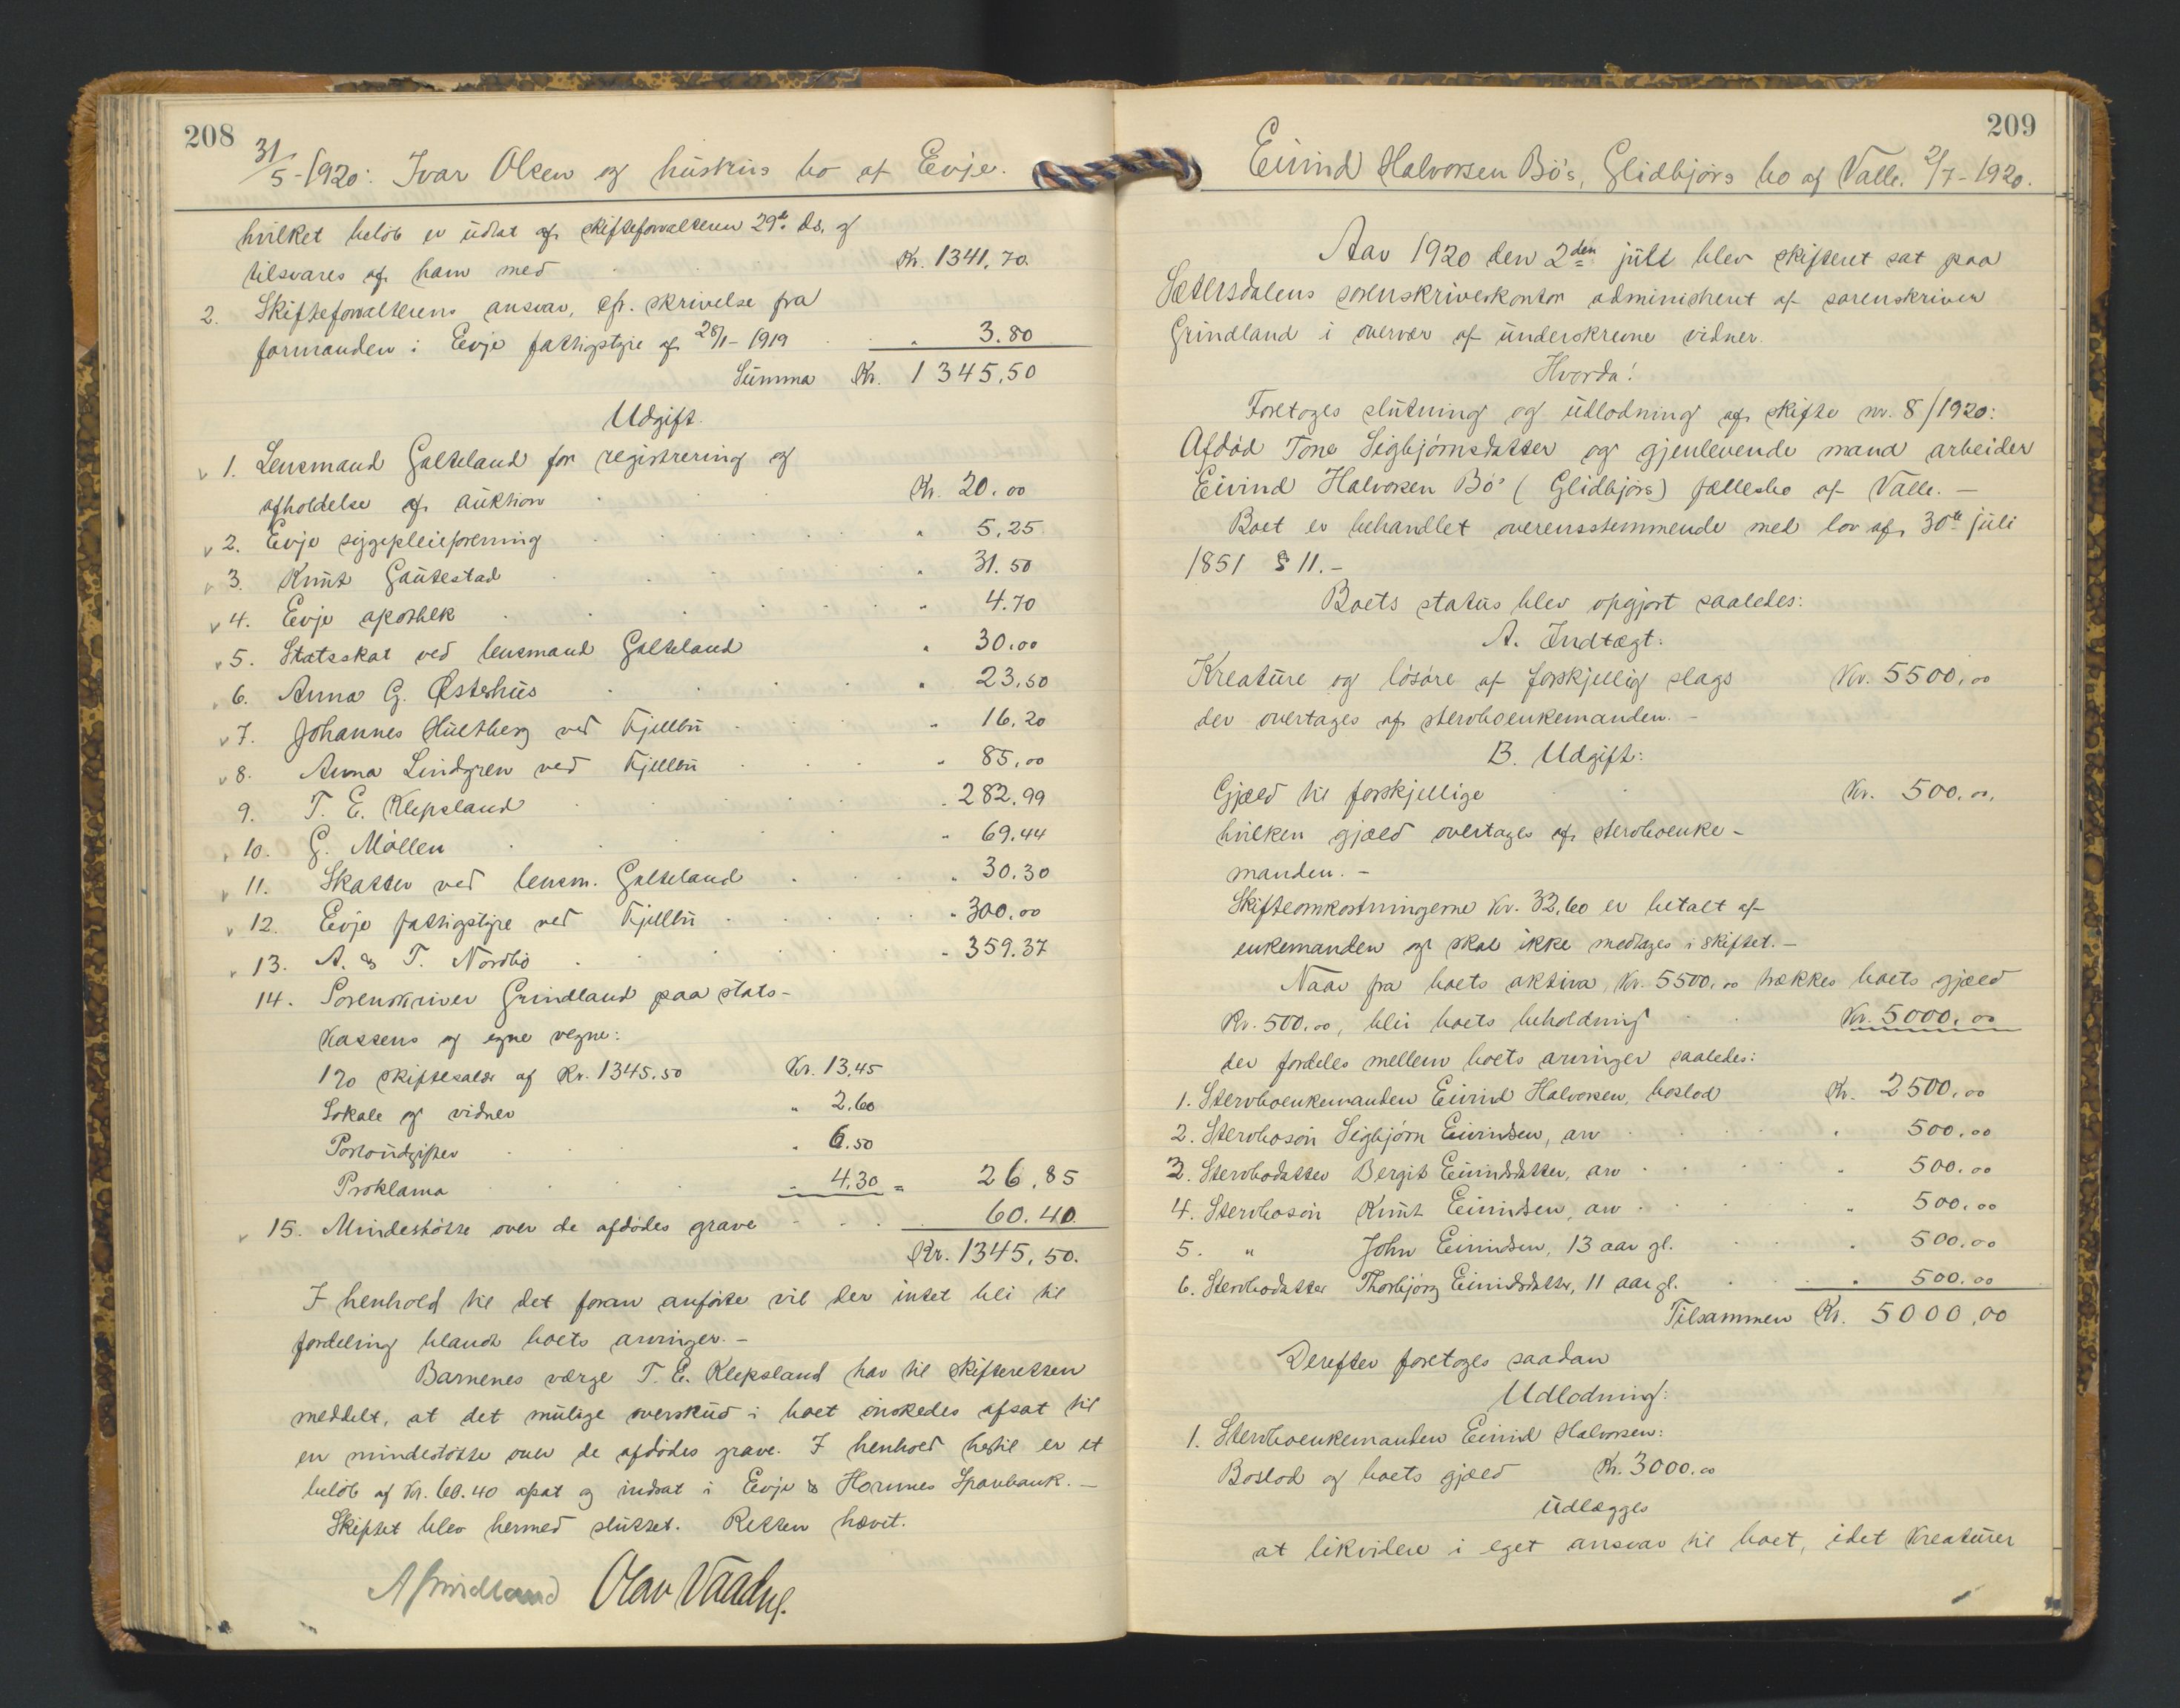 208
31/5-1920: Ivar Olsen og hustrus bo af Evje.
hvilket belöb er udsat af skifteforvalteren 29de ds. og
tilsvares af ham med Kr. 1341.70.
2. Skifteforvalterens ansvar, cfr. skrivelse fra
formanden i Evje fattigstyre af 28/1-1919 " 3.80
Summa Kr. 1345,50
Udgift.
1. Lensmand Galteland for registrering og
afholdelse af auktion Kr. 20.00
2. Evje sygepleieforening " 5,25
3. Knut Gautestad " 31.50
4. Evje apothek " 4.70
5. Statsskat ved lensmand Galteland " 30.00
6. Anna G. Østerhus " 23.50
7. Johannes Hultberg ved Fjellbu " 16.20
8. Anna Lindgren ved Fjellbu " 85,00
9. T. E. Klepsland " 282.99
10. G. Möllen " 69.44
11. Skatter ved lensm. Galteland " 30.30
12. Evje fattigstyre ved Fjellbu " 300.00
13. A. & T. Nordbö " 359.37
14. Sorenskriver Grindland paa stats-
kassens og egne vegne:
1% skiftesalær af Kr. 1345.50 Kr. 13.45
Lokale og vidner " 2.60
Portoudgifter " 6.50
Proklama " 4.30 = 26.85
15. Mindestötte over de afdödes grave 60.40
Kr. 1345,50.
I henhold til det foran anförte vil der intet bli til
fordeling blandt boets arvinger.-
Barnenes værge T. E. Klepsland har til skifteretten
meddelt, at det mulige overskud i boet önskedes afsat til
en mindestötte over de afdödes grave. I henhold hertil er et
belöb af Kr. 60.40 afsat og indsat i Evje & Hornnes Sparebank.-
Skiftet blev hermed sluttet. Retten hævet.
A Grindland Olav
209
Eivind Halvorsen Bö's, Glidbjörs bo af Valle. 2/7-1920.
Aar 1920 den 2den juli blev skifteret sat paa
Sætersdalens sorenskriverkontor administrert af sorenskriver
Grindland i overvær af underskrevne vidner.
Hvorda!
Foretoges slutning og udlodning af skifte nr. 8/1920:
Afdöd Tone Sigbjörnsdatter og gjenlevende mand arbeider
Eivind Halvorsen Bö's (Glidbjörs) fællesbo af Valle.-
Boet er behandlet overensstemmende med lov af 30te juli
1851 § 11.-
Boets status blev opgjort saaledes:
A. Indtægt:
Kreature og lösöre af forskjellig slags Kr. 5500,00
der overtages af stervboenkemanden.-
B. Udgift:
Gjæld til forskjellige Kr. 500.00,
hvilken gjæld overtages af stervboenke-
manden.-
Skifteomkostningerne Kr. 32.60 er betalt af
enkemanden og skal ikke medtages i skiftet.-
Naar fra boets aktiva, Kr. 5500.00 trækkes boets gjæld
Kr. 500.00, blir boets beholdning Kr. 5000.00
der fordeles mellem boets arvinger saaledes:
1. Stervboenkemanden Eivind Halvorsen, boslod Kr. 2500,00
2. Stervbosön Sigbjörn Eivindsen, arv " 500.00
3. Stervbodatter Bergit Eivindsdatter, arv " 500.00
4. Stervbosön Knut Eivindsen, arv " 500.00
5. " John Eivindsen, 13 aar gl. " 500.00
6. Stervbodatter Thorbjörg Eivindsdatter, 11 aar gl. " 500.00
Tilsammen Kr. 5000,00
Derefter foretoges saadan
Udlodning:
1. Stervboenkemanden Eivind Halvorsen:
Boslod og boets gjæld Kr. 3000.00
udlægges
at likvidere i eget ansvar til boet, idet kreaturer